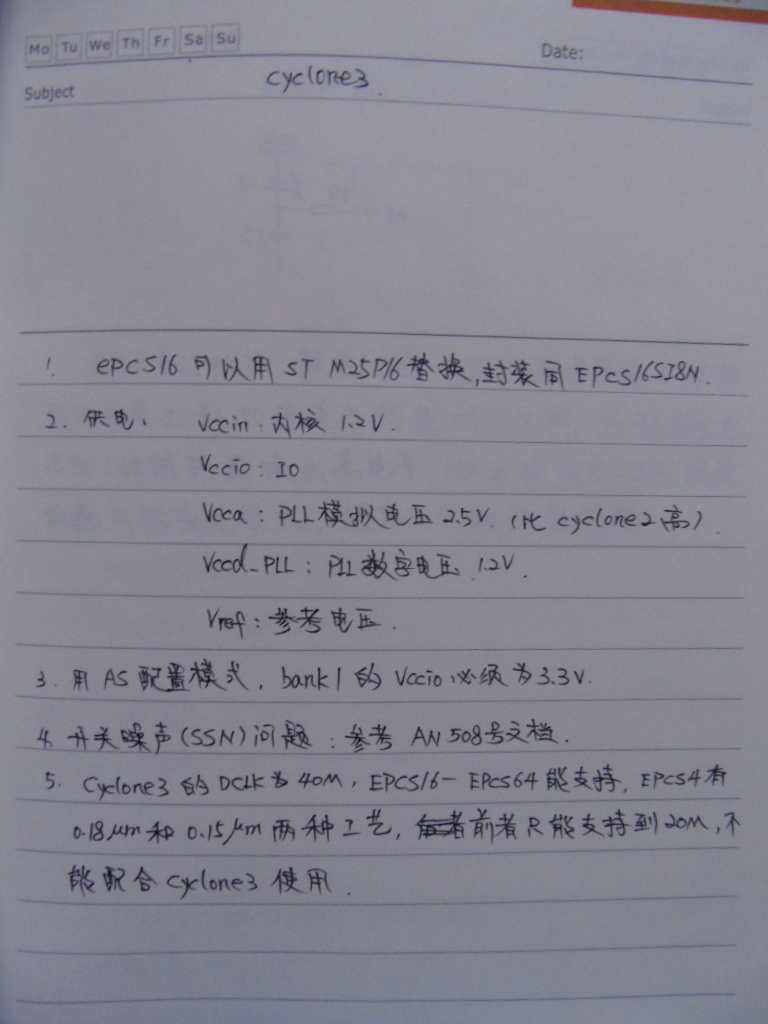 Mo Tu We Th Fr Sa Su
Date:
Subject
cyclone3.
1. EPCS16 可以用 ST M25P16替换,封装同EPCS16SI8N.
2. 供电: Vccin:内核 1.2V.
Vccio:IO
Vcca:PLL模拟电压 2.5V.(比 cyclone2高).
Vccd_PLL:PLL数字电压 1.2V.
Vref:参考电压.
3. 用 AS 配置模式, bank1 的 Vccio 必须为3.3V.
4. 开关噪声(SSN)问题:参考 AN 508号文档.
5. Cyclone3 的 DCLK为 40M, EPCS16-EPCS64 能支持, EPCS4有
0.18μm和 0.15μm 两种工艺, 前者只能支持到20M,不
能配合 cyclone3 使用.